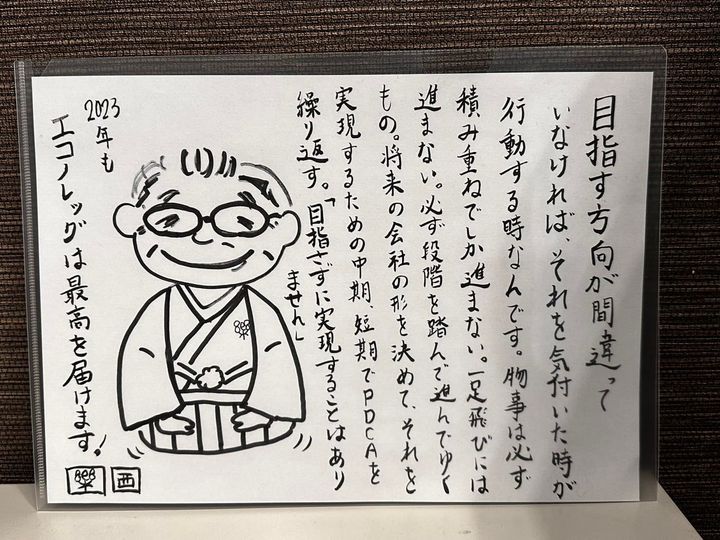 目指す方向が間違って
いなければ、それを気付いた時が
行動する時なんです。物事は必ず
積み重ねでしか進まない。一足飛びには
進まない。必ず段階を踏んで進んでゆく
もの。将来の会社の形を決めて、それを
実現するための中期、短期でPDCAを
繰り返す。「目指さずに実現することはあり
ません」
2023年も
エコノレッグは最高を届けます!
樂 西